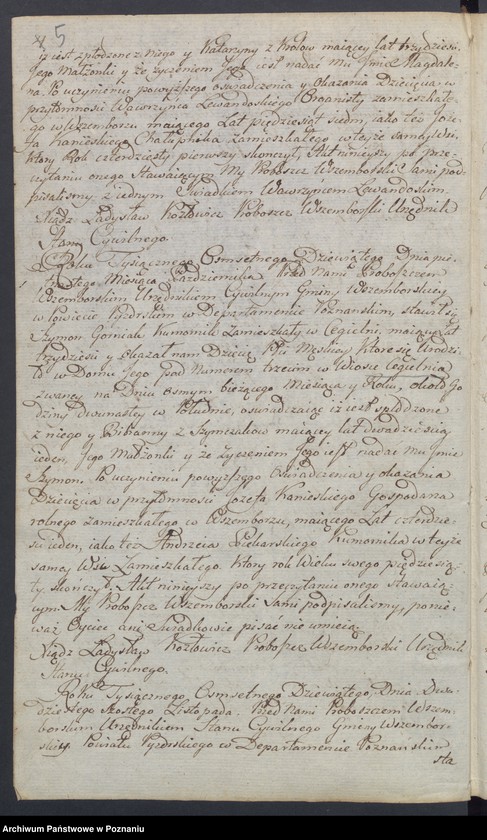 5
iż iest spłodzone z niego y Katarzyny z Krolow maiącey lat trzydzieści
Jego Małżonki y że życzeniem Jego iest nadać mu Jmie Magdale-
na. Po uczynieniu powyższego oswiadczenia y okazania Dziecięcia w
przytomności Wawrzyńca Lewandoskiego Organisty zamieszkałe-
go w Wszemborzu maiącego Lat pięćdziesiąt siedm, iako też Joze-
fa Kanieskiego Chałupnika zamieszkałego w teyże samey Wsi,
ktory Rok czterdziesty pierwszy skonczył, Akt ninieyszy po prze-
czytaniu onego Stawaiącym My Proboszcz Wszemborski Sami pod-
pisalismy z iednym Swiadkiem Wawrzyńcem Lewandoskim.
Xiądz Ladysław Kozłowicz Proboszcz Wszemborski Urzędnik
Stanu Cywilnego.
Roku Tysiącznego Osmsetnego Dziewiątego Dnia
Miesiąca Pazdziernika Przed Nami Proboszczem
Wszemborskim Urzędnikiem Cywilnym Gminy Wszemborskiey
w Powiecie Pyzdrskim w Departamencie Poznanskim, stawił się
Szymon Gorniak Komornik zamieszkały w Cegielni, maiący lat
trzydziesci y okazał nam Dziecię Płci Męskiey ktore się Urodzi-
ło w Domu Jego pod Numerem trzecim w Wiosce Cegielnia
zwaney na Dniu osmym bieżącego Miesiąca y Roku, około Go-
dziny dwunastey w Południe, oswiadczaiąc iż iest spłodzone
z niego y Bibianny z Szymczakow maiącey lat dwadziescia
ieden, Jego Małżonki y że życzeniem Jego iest nadać mu Jmie
Szymon. Po uczynieniu powyższego Oswiadczenia y okazania
Dziecięcia w przytomności Jozefa Kanieskiego Gospodarza
rolnego zamieszkałego w Wszemborzu, maiącego Lat czterdzie-
sci ieden, iako też Andrzeia Piekarskiego Komornika w teyże
samey Wsi Zamieszkałego. Ktory rok Wieku swego pięćdziesią-
ty skończył. Akt ninieyszy po przeczytaniu onego stawaią-
cym My Proboszcz Wszemborski Sami podpisalismy, ponie-
waż Oyciec ani Swiadkowie pisać nie umieią
Xiądz Ladysław Kozłowicz Proboszcz Wszemborski Urzędnik
Stanu Cywilnego.
Roku Tysiącznego Osmsetnego Dziewiątego, Dnia Dwu-
dziestego szostego Listopada. Przed Nami Proboszczem Wszem-
borskim Urzędnikiem Stanu Cywilnego Gminy Wszembor-
skiey Powiatu Pyzdrskiego w Departamencie Poznanskim
sta
Archiwum Państwowe w Poznaniu